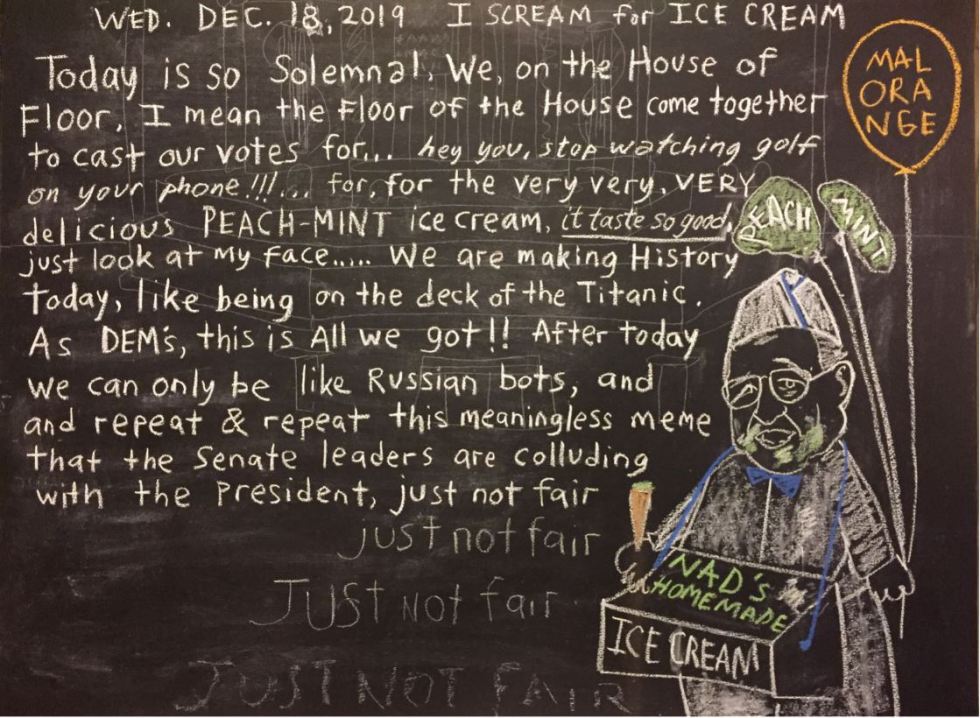 WED. DEC. 18, 2019 I SCREAM for ICE CREAM
Today is so Solemnal. We, on the House of
Floor, I mean the Floor of the House come together
to cast our votes for... hey you, stop watching golf
on your phone!!!... for, for the very very, VERY
delicious PEACH-MINT ice cream, it taste so good,
just look at My face..... We are making History
today, like being on the deck of the Titanic.
As DEM's, this is All we got!! After today
we can only be like Russian bots, and
and repeat & repeat this meaningless meme
that the Senate leaders are colluding
with the President, just not fair
just not fair
JUST Not fair
JUST NOT FAIR
MAL
ORA
NGE
PEACH
MINT
NAD's
HOMEMADE
ICE CREAM